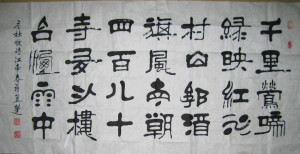 千里鶯啼
緑映紅水
村山郭酒
旗風南朝
四百八十
寺多少樓
台煙雨中
杜牧詩江南春